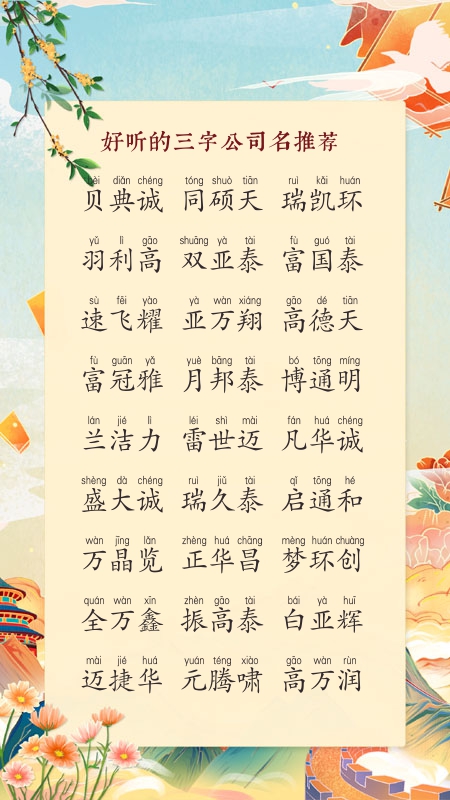 好听的三字公司名推荐
bèi diǎn chéng tóng shuò tiān ruì kǎi huán
贝典诚 同硕天 瑞凯环
yǔ lì gāo shuāng yà tài fù guó tài
羽利高 双亚泰 富国泰
sù fēi yào yà wàn xiáng gāo dé tiān
速飞耀 亚万翔 高德天
fù guān yǎ yuè bāng tài bó tōng míng
富冠雅 月邦泰 博通明
lán jié lì léi shì mài fán huá chéng
兰洁力 雷世迈 凡华诚
shèng dà chéng ruì jiǔ tài qǐ tōng hé
盛大诚 瑞久泰 启通和
wàn jīng lǎn zhèng huá chāng mèng huán chuàng
万晶览 正华昌 梦环创
quán wàn xīn zhèn gāo tài bái yà huī
全万鑫 振高泰 白亚辉
mài jié huá yuán téng xiào gāo wàn rùn
迈捷华 元腾啸 高万润